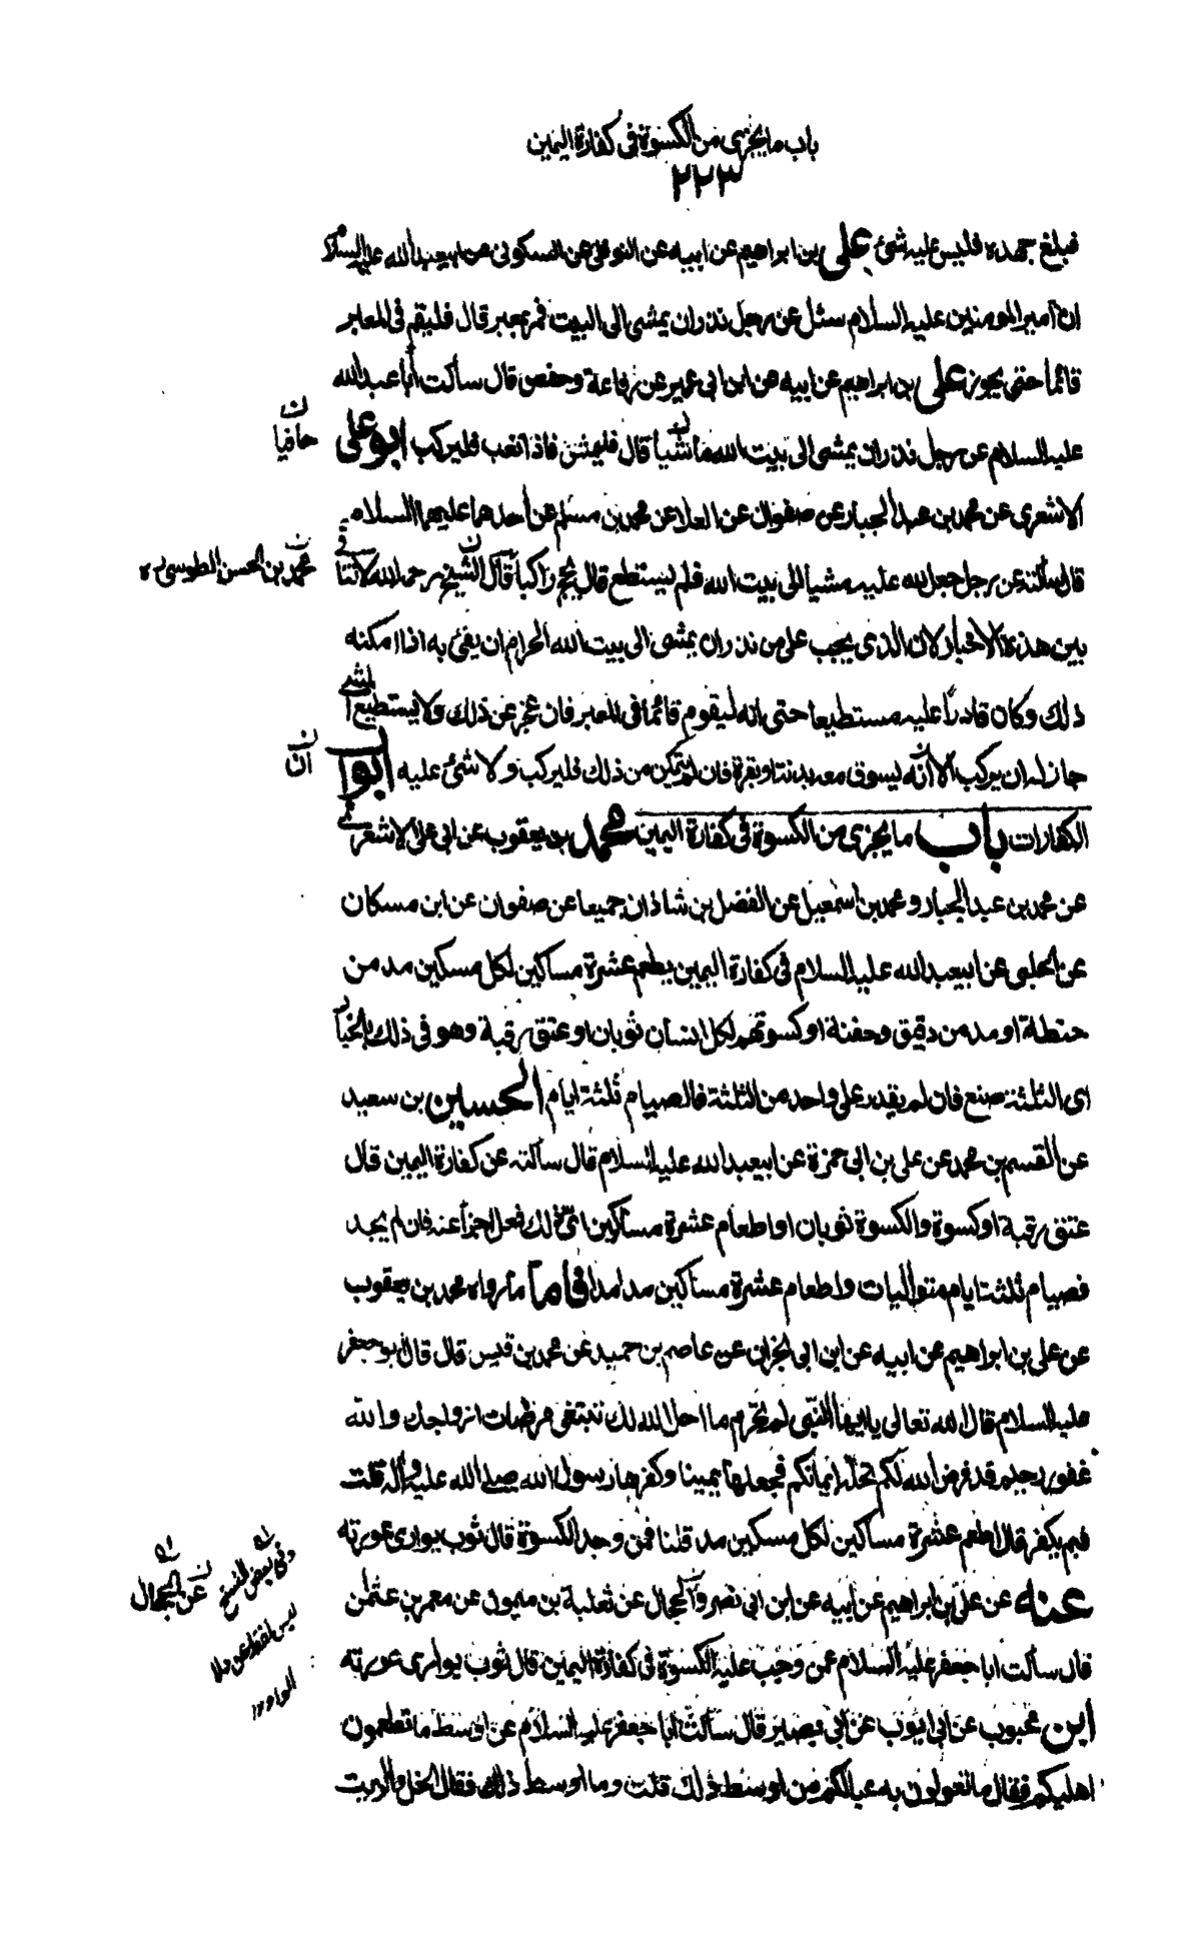 باب ما يجزى من الكسوة فى كفارة اليمين
٢٢٣
فبلغ جهده فليس عليه شئ على بن ابراهيم عن ابيه عن النوفلى عن السكونى عن ابيعبد الله عليه السلام
ان امير المومنين عليه السلام سئل عن رجل نذر ان يمشى الى البيت فمر بمعبر قال فليقم فى المعابر
قائما حتى يجوزه على بن ابراهيم عن ابيه عن ابن ابى عمير عن رفاعة وحفص قال سألت أبا عبد الله
عليه السلام عن رجل نذر ان يمشى الى بيت الله ماشيا قال فليمش فاذا تعب فليركب ابو على
ن حافيا
الاشعرى عن محمد بن عبد الجبار عن صفوان عن العلا عن محمد بن مسلم عن أحدهما عليهما السلام
قال سألته عن رجل جعل لله عليه مشيا الى بيت الله فلم يستطع قال يحج راكبا قال الشيخ رحمه الله لا تنافى
ن محمد بن الحسن الطوسى ره
بين هذه الاخبار لان الذى يجب على من نذر ان يمشى الى بيت الله الحرام ان يفئ به اذا امكنه
ذلك وكان قادرا عليه مستطيعا حتى انه ليقوم قائما فى المعبر فان عجز عن ذلك ولا يستطيع المشى
جاز له ان يركب الا انه ليسوق معه بدنة او بقرة فان لم يتمكن من ذلك فليركب ولا شئ عليه ابواب
ن ان
الكفارات باب ما يجزى من الكسوة فى كفارة اليمين محمد بن يعقوب عن ابى على الاشعرى
عن محمد بن عبد الجبار و محمد بن اسمعيل عن الفضل بن شاذان جميعا عن صفوان عن ابن مسكان
عن الحلبى عن ابيعبد الله عليه السلام فى كفارة اليمين يطعم عشرة مساكين لكل مسكين مد من
حنطة او مد من دقيق وحفنة او كسوتهم لكل انسان ثوبان او عتق رقبة وهو فى ذلك بالخيار
اى الثلثة صنع فان لم يقدر على واحد من الثلثة فالصيام ثلثة ايام الحسين بن سعيد
عن القسم بن محمد عن على بن ابى حمزة عن ابيعبد الله عليه السلام قال سألته عن كفارة اليمين قال
عتق رقبة او كسوة والكسوة ثوبان او اطعام عشرة مساكين اى ذلك فعل اجزأ عنه فان لم يجد
فصيام ثلثة ايام متواليات واطعام عشرة مساكين مدا مدا فاما ما رواه محمد بن يعقوب
عن على بن ابراهيم عن ابيه عن ابن ابى نجران عن عاصم بن حميد عن محمد بن قيس قال قال ابو جعفر
عليه السلام قال الله تعالى يا ايها النبى لم تحرم ما احل الله لك تبتغى مرضات ازواجك والله
غفور رحيم قد فرض الله لكم تحلة ايمانكم فجعلها يمينا وكفرها رسول الله صلى الله عليه وآله قلت
فبم يكفر قال اطعم عشرة مساكين لكل مسكين مد قلنا فمن وجد الكسوة قال ثوب يوارى عورته
عنه عن على بن ابراهيم عن ابيه عن ابن ابى نصر والحجال عن ثعلبة بن ميمون عن معمر بن عثمن
ن عن الحجال
وفى بعض النسخ
ليس لفظ عن
الواو
قال سألت ابا جعفر عليه السلام عمن وجب عليه الكسوة فى كفارة اليمين قال ثوب يوارى عورته
ابن محبوب عن ابى ايوب عن ابى بصير قال سألت ابا جعفر عليه السلام عن اوسط ما تطعمون
اهليكم فقال ما تعولون به عيالكم من اوسط ذلك قلت وما اوسط ذلك فقال الخل والزيت